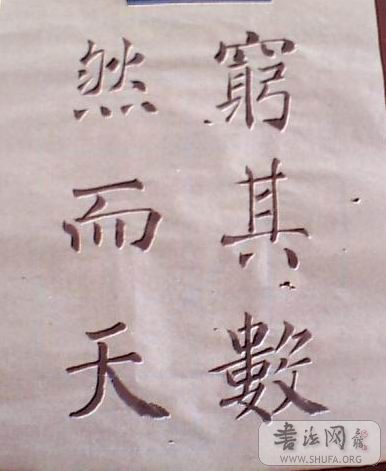 窮其數
然而天
書法网
WWW.SHUFA.ORG